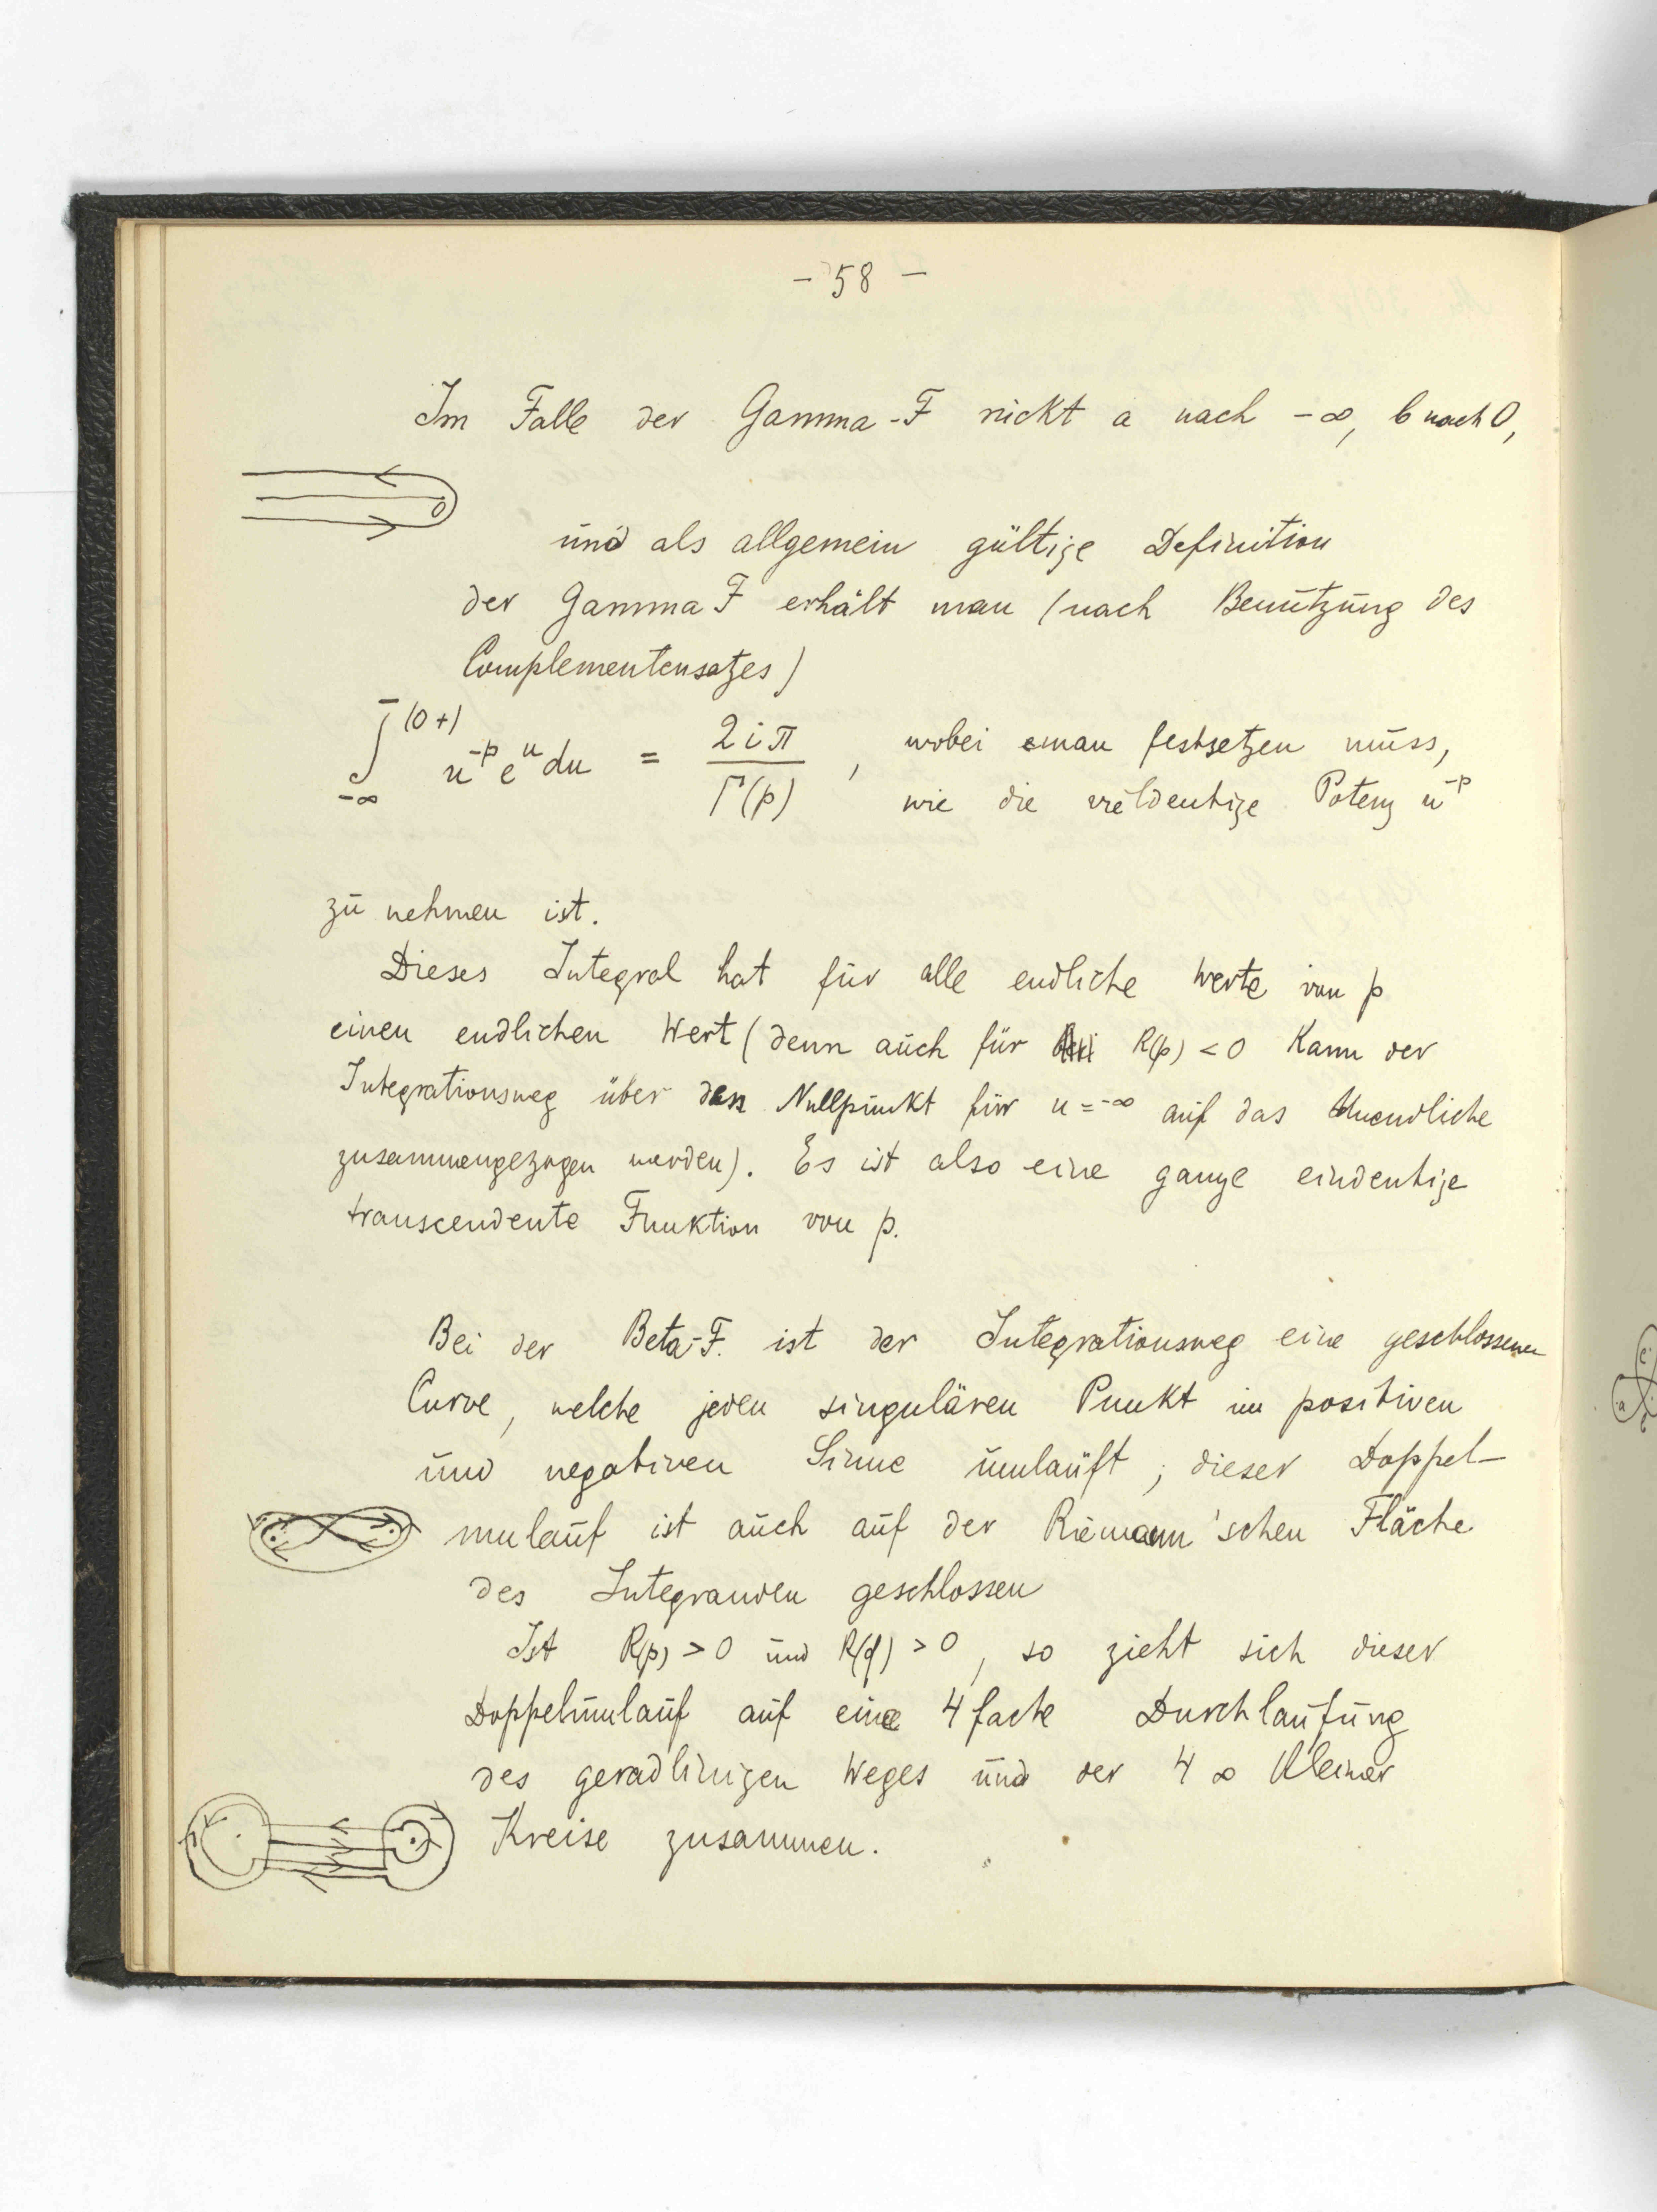 - 58 -
Im Falle der Gamma-F rückt a nach -∞, b nach 0,
0
und als allgemein gültige Definition
der Gamma F erhält man (nach Benützung des
Complementensatzes)
∫_{-∞}^{(0+)} u^{-p} e^u du = 2iπ / Γ(p) , wobei man festsetzen muss,
wie die vieldeutige Potenz u^{-p}
zu nehmen ist.
Dieses Integral hat für alle endliche Werte von p
einen endlichen Wert (denn auch für R(p) < 0 kann der
Integrationsweg über den Nullpunkt für u = -∞ auf das Unendliche
zusammengezogen werden). Es ist also eine ganze eindeutige
transcendente Funktion von p.
Bei der Beta-F. ist der Integrationsweg eine geschlossene
Curve, welche jeden singulären Punkt im positiven
und negativen Sinne umläuft; dieser Doppel-
umlauf ist auch auf der Riemann'schen Fläche
des Integranden geschlossen
Ist R(p) > 0 und R(q) > 0, so zieht sich dieser
Doppelumlauf auf eine 4 fache Durchlaufung
des geradlinigen Weges und der 4 ∞ kleiner
Kreise zusammen.